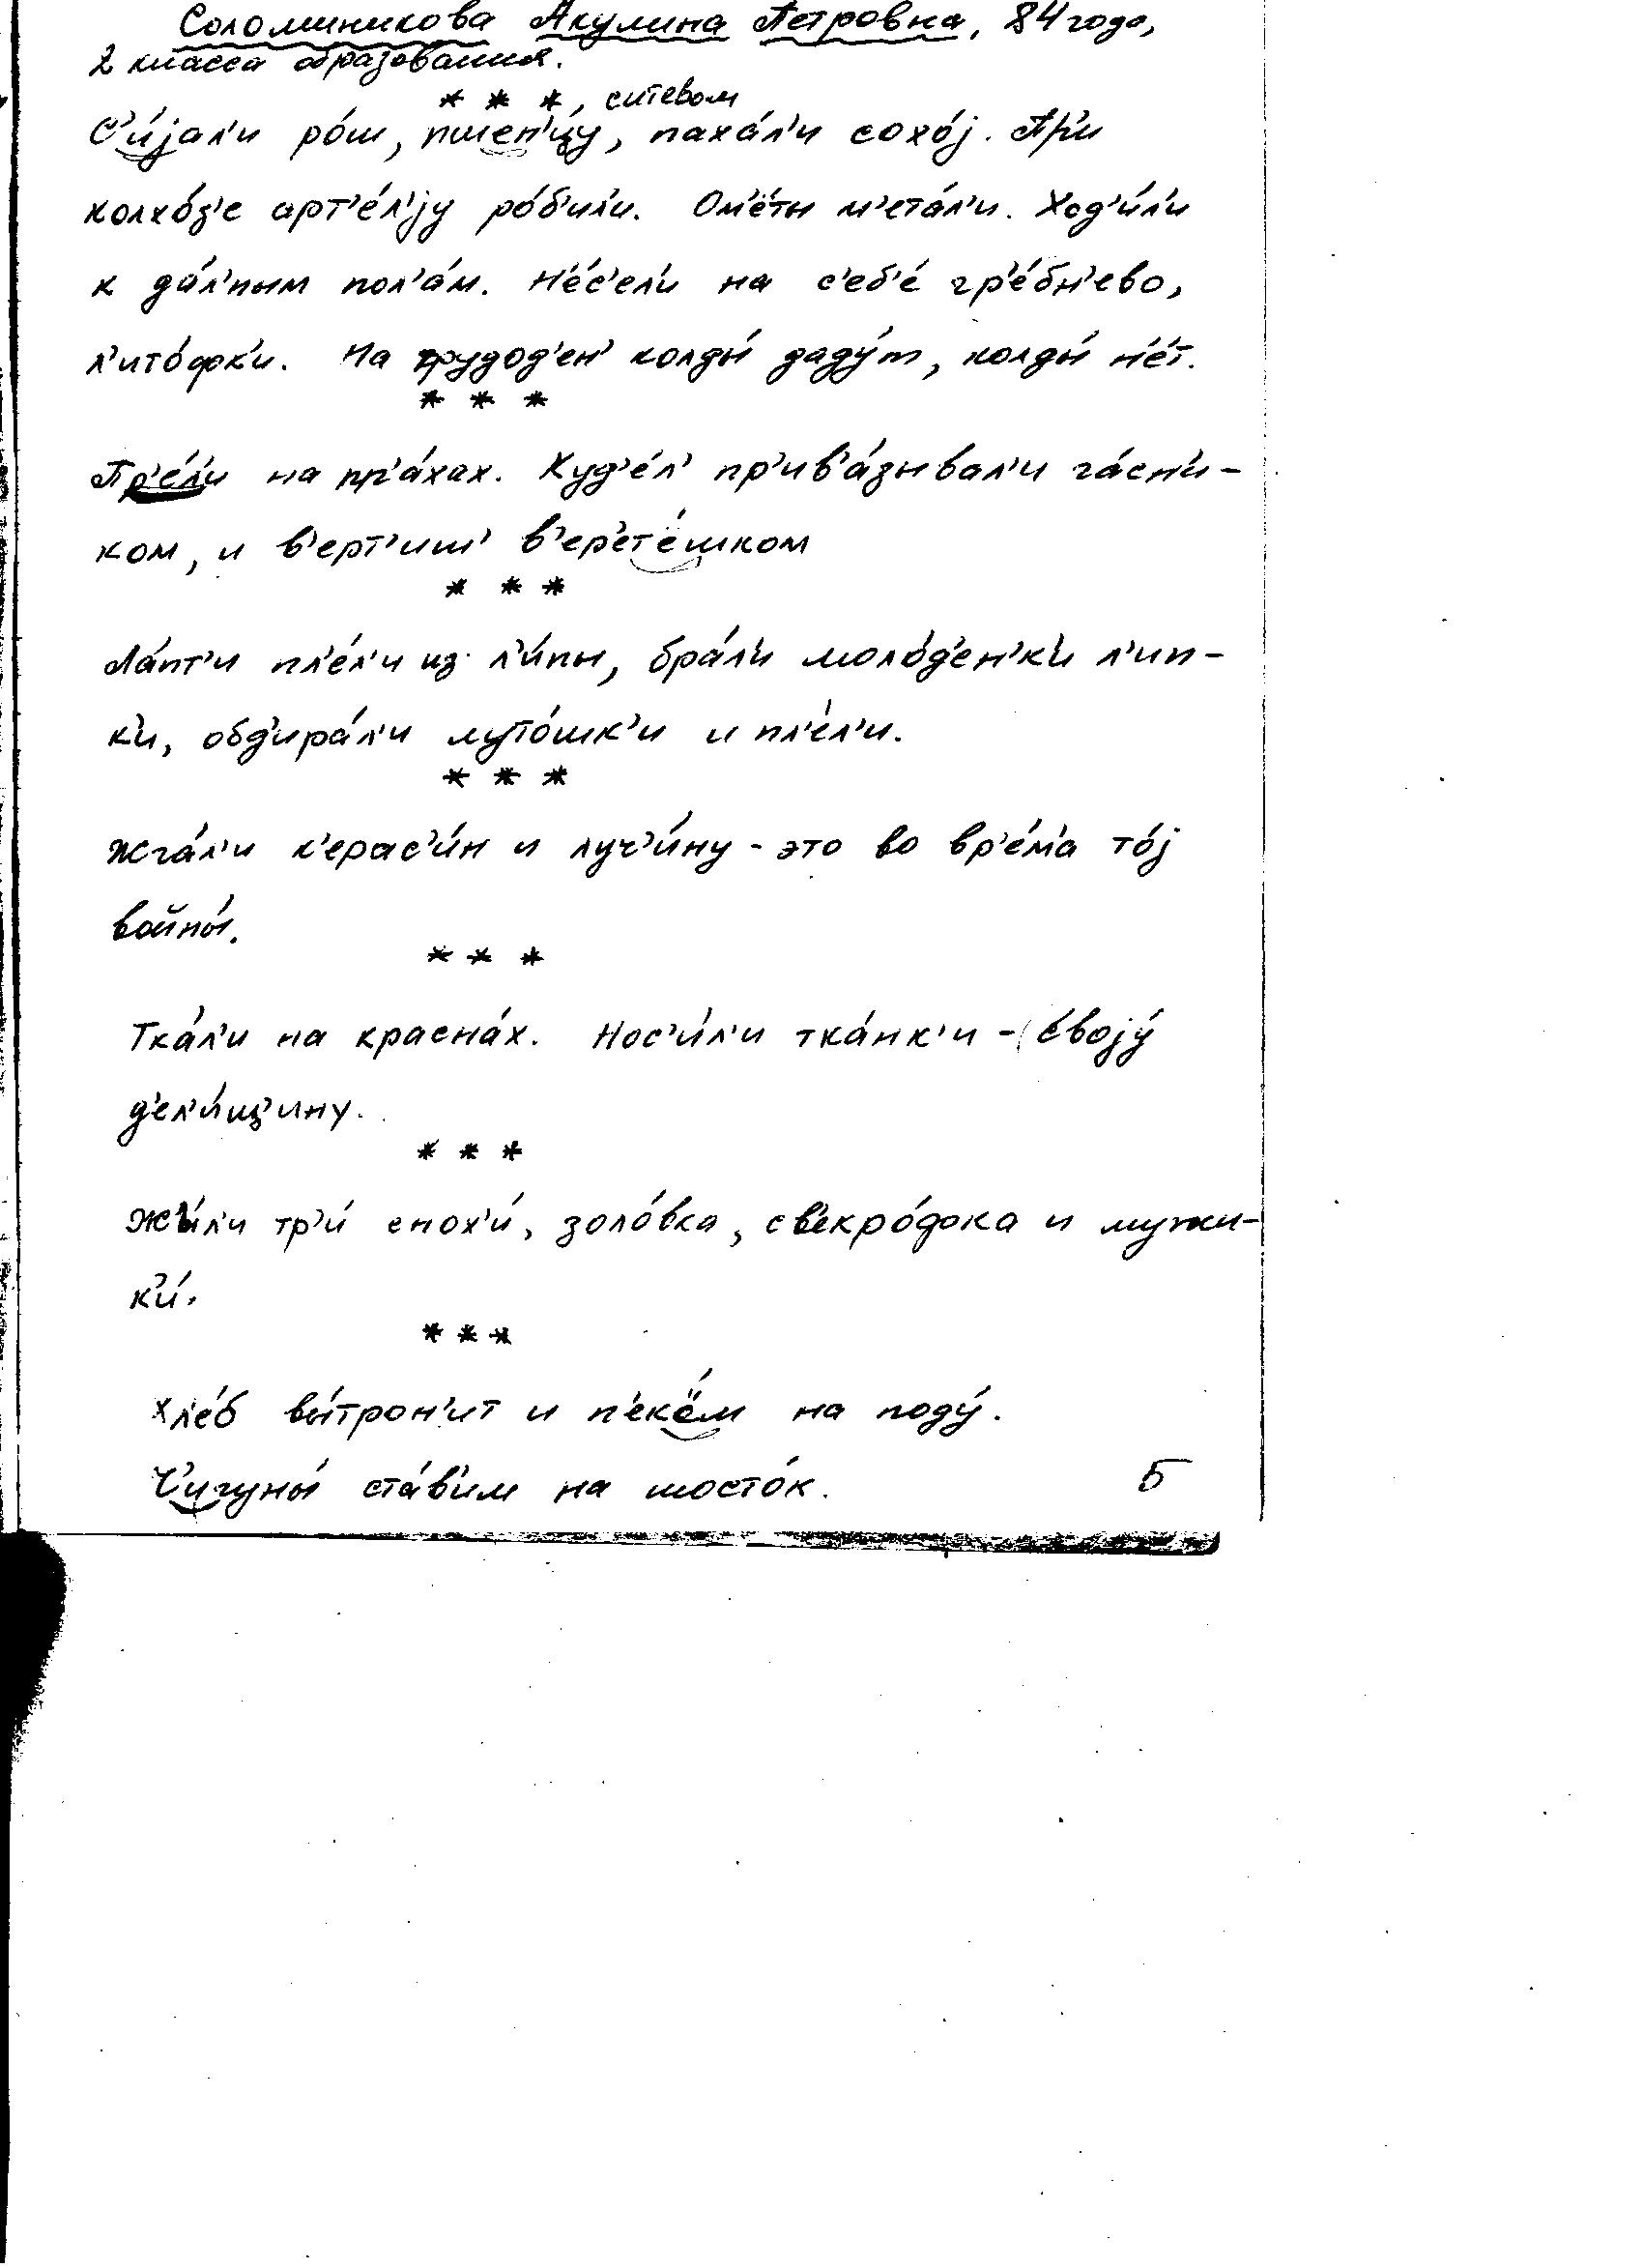 Соломинникова Акулина Петровна, 84 года,
2 класса образования.
* * *, ситевом
С’и́јал’и ро́ш, пшен’и́цу, паха́л’и сохо́ј. Пр’и
колхо́з’е арт’е́л’јy ро́б’ил’и. Ом’ёты м’ета́л’и. Ход’и́л’и
к да́л’ным пол’а́м. Н’е́с’ел’и на с’еб’е́ гр’е́бн’ево,
л’ито́фк’и. На трудод’ен’ колды́ даду́т, колды́ н’е́т.
* * *
Пр’е́л’и на пр’а́хах. Куд’е́л’ пр’ив’а́зывал’и га́сн’и-
ком, и в’ерт’иш’ в’ер’ет’ёшком
* * *
Ла́пт’и пл’е́л’и из л’и́пы, бра́л’и моло́д’ен’к’и л’ип-
к’и, обд’ира́л’и луто́шк’и и пл’е́л’и.
* * *
Жга́л’и к’ерас’и́н и луч’и́ну - это во вр’е́м’а то́ј
войны́.
* * *
Тка́л’и на красна́х. Нос’и́л’и тка́нк’и - своју́
д’ел’и́щ’ину.
* * *
Жы́л’и тр’и́ снох’и́, золо́вка, св’екро́вка и мужи-
к’и́.
* * *
Хл’е́б вы́трон’ит и п’ек’ём на поду́.
Ч’игуны́ ста́в’им на шосто́к.
5